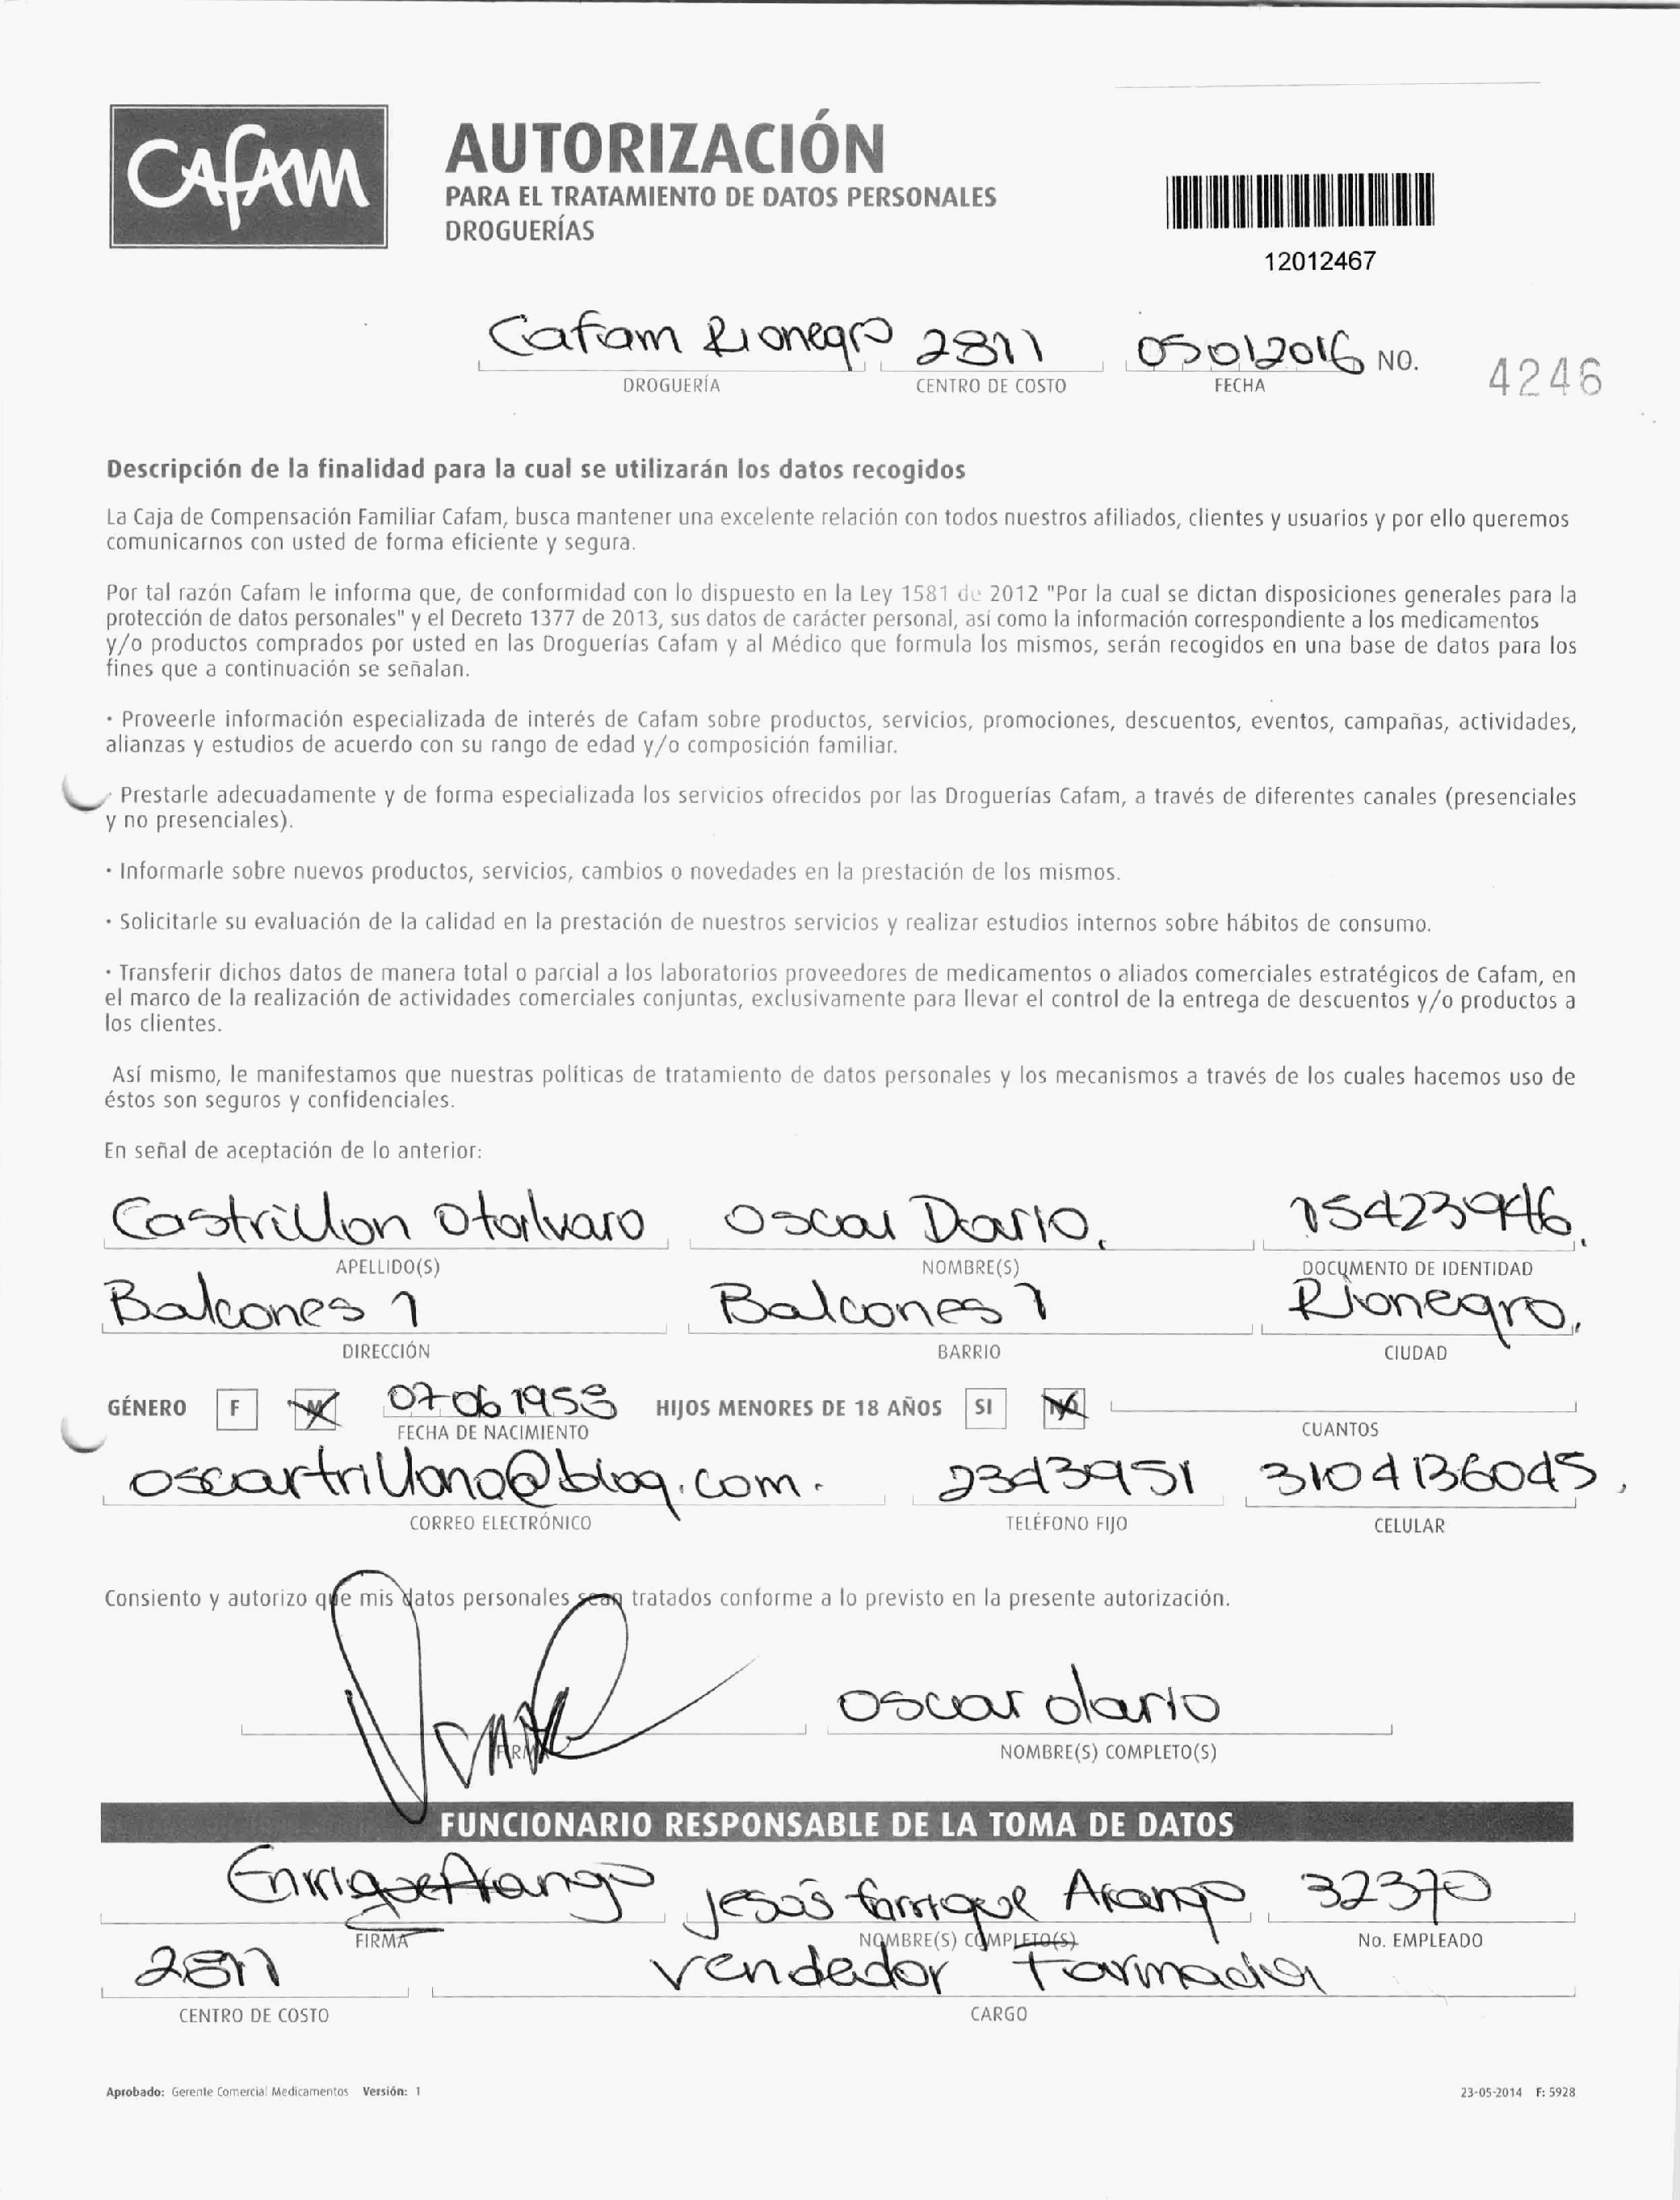 CAFAM
AUTORIZACIÓN
PARA EL TRATAMIENTO DE DATOS PERSONALES
DROGUERÍAS
12012467
Cafam Rionegro 2811 05012016 NO. 4246
DROGUERÍA CENTRO DE COSTO FECHA
Descripción de la finalidad para la cual se utilizarán los datos recogidos
La Caja de Compensación Familiar Cafam, busca mantener una excelente relación con todos nuestros afiliados, clientes y usuarios y por ello queremos
comunicarnos con usted de forma eficiente y segura.
Por tal razón Cafam le informa que, de conformidad con lo dispuesto en la Ley 1581 de 2012 "Por la cual se dictan disposiciones generales para la
protección de datos personales" y el Decreto 1377 de 2013, sus datos de carácter personal, así como la información correspondiente a los medicamentos
y/o productos comprados por usted en las Droguerías Cafam y al Médico que formula los mismos, serán recogidos en una base de datos para los
fines que a continuación se señalan.
· Proveerle información especializada de interés de Cafam sobre productos, servicios, promociones, descuentos, eventos, campañas, actividades,
alianzas y estudios de acuerdo con su rango de edad y/o composición familiar.
· Prestarle adecuadamente y de forma especializada los servicios ofrecidos por las Droguerías Cafam, a través de diferentes canales (presenciales
y no presenciales).
· Informarle sobre nuevos productos, servicios, cambios o novedades en la prestación de los mismos.
· Solicitarle su evaluación de la calidad en la prestación de nuestros servicios y realizar estudios internos sobre hábitos de consumo.
· Transferir dichos datos de manera total o parcial a los laboratorios proveedores de medicamentos o aliados comerciales estratégicos de Cafam, en
el marco de la realización de actividades comerciales conjuntas, exclusivamente para llevar el control de la entrega de descuentos y/o productos a
los clientes.
Así mismo, le manifestamos que nuestras políticas de tratamiento de datos personales y los mecanismos a través de los cuales hacemos uso de
éstos son seguros y confidenciales.
En señal de aceptación de lo anterior:
Castrillon Otalvaro Oscar Dario. 15423946.
APELLIDO(S) NOMBRE(S) DOCUMENTO DE IDENTIDAD
Balcones 1 Balcones 1 Rionegro,
DIRECCIÓN BARRIO CIUDAD
GÉNERO F M 07061958 HIJOS MENORES DE 18 AÑOS SI NO
FECHA DE NACIMIENTO CUANTOS
oscartrillono@blog.com. 3104136045.
CORREO ELECTRÓNICO TELÉFONO FIJO CELULAR
Consiento y autorizo que mis datos personales sean tratados conforme a lo previsto en la presente autorización.
oscar dario
FIRMA NOMBRE(S) COMPLETO(S)
FUNCIONARIO RESPONSABLE DE LA TOMA DE DATOS
Enrique Arango Jesús Enrique Arango 32370
FIRMA NOMBRE(S) COMPLETO(S) No. EMPLEADO
2811 vendedor Farmacia
CENTRO DE COSTO CARGO
Aprobado: Gerente Comercial Medicamentos Versión: 1 23-05-2014 F: 5928